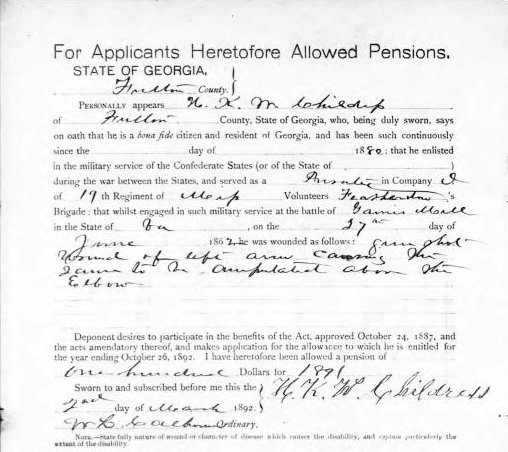 For Applicants Heretofore Allowed Pensions.
STATE OF GEORGIA,
Fulton County.
PERSONALLY appears H. K. M Childress
of Fulton County, State of Georgia, who, being duly sworn, says
on oath that he is a bona fide citizen and resident of Georgia, and has been such continuously
since the day of 1880; that he enlisted
in the military service of the Confederate States (or of the State of )
during the war between the States, and served as a Private in Company I
of 19th Regiment of Miss Volunteers Featherston's
Brigade; that whilst engaged in such military service at the battle of Gaines Mill
in the State of Va, on the 27th day of
June 1862, he was wounded as follows: gun shot
wound of left arm causing the
same to be amputated above the
Elbow
Deponent desires to participate in the benefits of the Act, approved October 24, 1887, and
the acts amendatory thereof, and makes application for the allowance to which he is entitled for
the year ending October 26, 1892. I have heretofore been allowed a pension of
one hundred Dollars for 1891
Sworn to and subscribed before me this the
H. K. M. Childress
2nd day of March 1892.
W. L. Calhoun Ordinary.
NOTE.—State fully nature of wound or character of disease which causes the disability, and explain particularly the
extent of the disability.